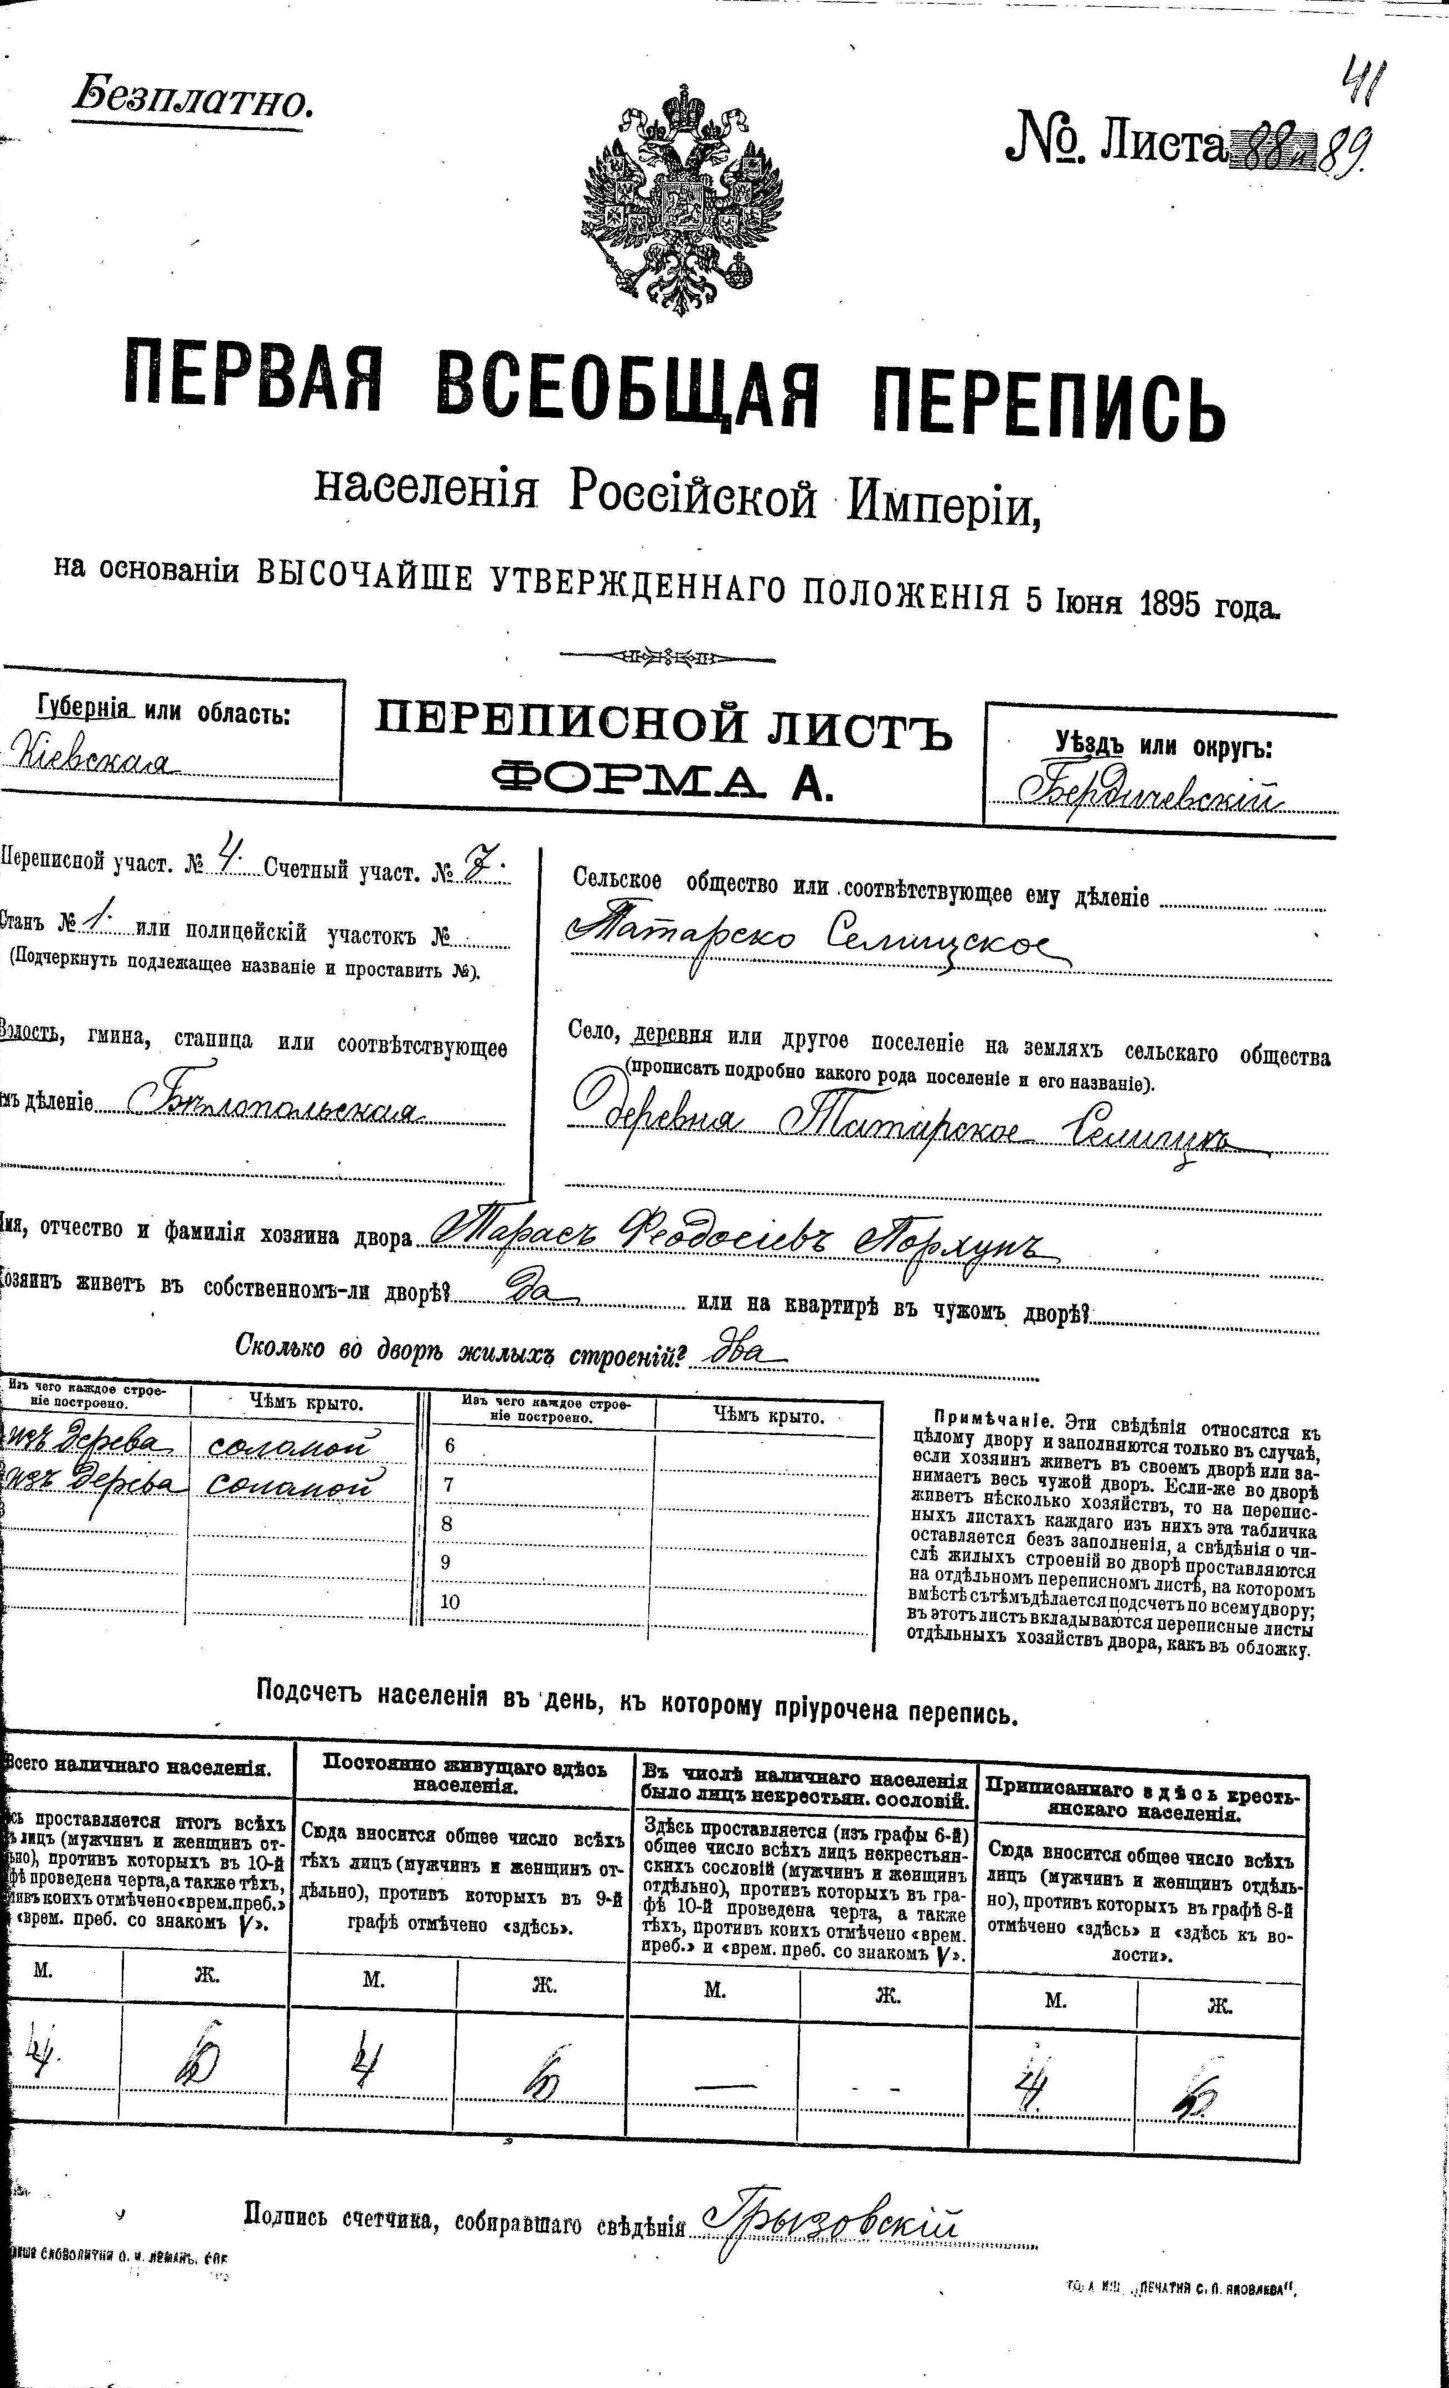 41
Безплатно.
№. Листа 88 и 89.
ПЕРВАЯ ВСЕОБЩАЯ ПЕРЕПИСЬ
населенія Россійской Имперіи,
на основаніи ВЫСОЧАЙШЕ УТВЕРЖДЕННАГО ПОЛОЖЕНІЯ 5 Іюня 1895 года.
Губернія или область:
Кіевская
ПЕРЕПИСНОЙ ЛИСТЪ
ФОРМА А.
Уѣздъ или округъ:
Бердичевскій
Переписной участ. № 4. Счетный участ. № 7.
Станъ № 1. или полицейскій участокъ №
(Подчеркнуть подлежащее названіе и проставить №).
Волость, гмина, станица или соотвѣтствующее
имъ дѣленіе Бѣлопольская
Сельское общество или соотвѣтствующее ему дѣленіе
Татарско Селищское
Село, деревня или другое поселеніе на земляхъ сельскаго общества
(прописать подробно какого рода поселеніе и его названіе).
Деревня Татарское
Имя, отчество и фамилія хозяина двора Тарасъ Феодосіевъ
Хозяинъ живетъ въ собственномъ-ли дворѣ? Да или на квартирѣ въ чужомъ дворѣ?
Сколько во дворѣ жилыхъ строеній? два
Изъ чего каждое строе-
ніе построено.
Чѣмъ крыто.
изъ дерева соломой
изъ дерева соломой
Изъ чего каждое строе-
ніе построено.
Чѣмъ крыто.
6
7
8
9
10
Примѣчаніе. Эти свѣдѣнія относятся къ
цѣлому двору и заполняются только въ случаѣ,
если хозяинъ живетъ въ своемъ дворѣ или за-
нимаетъ весь чужой дворъ. Если-же во дворѣ
живетъ нѣсколько хозяйствъ, то на перепис-
ныхъ листахъ каждаго изъ нихъ эта табличка
оставляется безъ заполненія, а свѣдѣнія о чи-
слѣ жилыхъ строеній во дворѣ проставляются
на отдѣльномъ переписномъ листѣ, на которомъ
вмѣстѣ съ тѣмъ дѣлается подсчетъ по всему двору;
въ этотъ листъ вкладываются переписные листы
отдѣльныхъ хозяйствъ двора, какъ въ обложку.
Подсчетъ населенія въ день, къ которому пріурочена перепись.
Всего наличнаго населенія.
сь проставляется итогъ всѣхъ
ъ лицъ (мужчинъ и женщинъ от-
ьно), противъ которыхъ въ 10-й
фѣ проведена черта, а также тѣхъ,
ивъ коихъ отмѣчено «врем. преб.»
«врем. преб. со знакомъ V».
М. Ж.
4. 6
Постоянно живущаго здѣсь
населенія.
Сюда вносится общее число всѣхъ
тѣхъ лицъ (мужчинъ и женщинъ от-
дѣльно), противъ которыхъ въ 9-й
графѣ отмѣчено «здѣсь».
М. Ж.
4 6
Въ числѣ наличнаго населенія
было лицъ некрестьян. сословій.
Здѣсь проставляется (изъ графы 6-й)
общее число всѣхъ лицъ некрестьян-
скихъ сословій (мужчинъ и женщинъ
отдѣльно), противъ которыхъ въ гра-
фѣ 10-й проведена черта, а также
тѣхъ, противъ коихъ отмѣчено «врем.
преб.» и «врем. преб. со знакомъ V».
М. Ж.
— - -
Приписаннаго здѣсь кресть-
янскаго населенія.
Сюда вносится общее число всѣхъ
лицъ (мужчинъ и женщинъ отдѣль-
но), противъ которыхъ въ графѣ 8-й
отмѣчено «здѣсь» и «здѣсь къ во-
лости».
М. Ж.
4. 6.
Подпись счетчика, собиравшаго свѣдѣнія Грызовскій
СЛОВОЛИТНИ О. И. ЛЕМАНЪ, СПБ
„ПЕЧАТНЯ С. П. ЯКОВЛЕВА“.